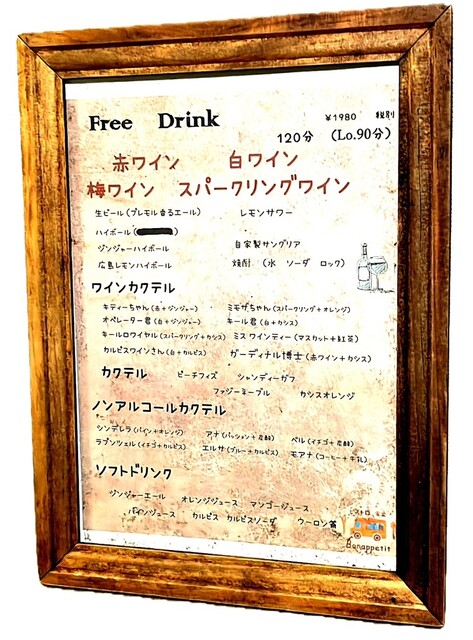 Free Drink ¥1980 税別
120分 (Lo.90分)
赤ワイン 白ワイン
梅ワイン スパークリングワイン
生ビール(プレモル香るエール) レモンサワー
ハイボール( )
ジンジャーハイボール 自家製サングリア
広島レモンハイボール 焼酎 (水 ソーダ ロック)
ワインカクテル
キティーちゃん(赤+ジンジャー) ミモザちゃん(スパークリング+オレンジ)
オペレーター君(白+ジンジャー) キール君(白+カシス)
キールロワイヤル(スパークリング+カシス) ミスワインティー(マスカット+紅茶)
カルピスワインさん(白+カルピス) ガーディナル博士(赤ワイン+カシス)
カクテル ピーチフィズ シャンディーガフ
ファジーネーブル カシスオレンジ
ノンアルコールカクテル
シンデレラ(パイン+オレンジ) アナ(パッション+炭酸) ベル(イチゴ+炭酸)
ラプンツェル(イチゴ+カルピス) エルサ(ブルー+カルピス) モアナ(コーヒー+牛乳)
ソフトドリンク
ジンジャーエール オレンジジュース マンゴージュース
パインジュース カルピス カルピスソーダ ウーロン茶
ビストロ
Bonappetit